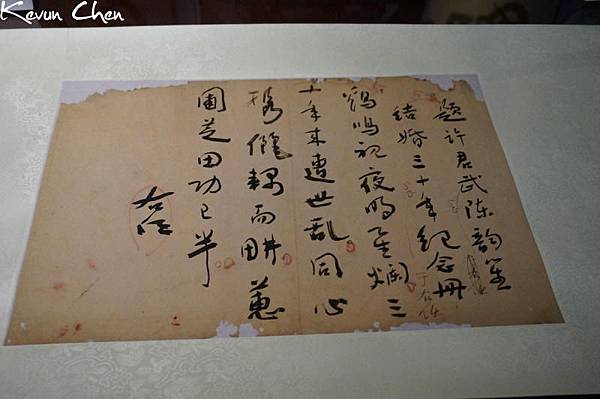 Kevun Chen
題許君武陳韵
結婚三十年紀念冊
于右任
鷄鳴視夜明星爛三
十年來遭世亂同心
儷耦而畊蕙
圃芝田功已半
右任